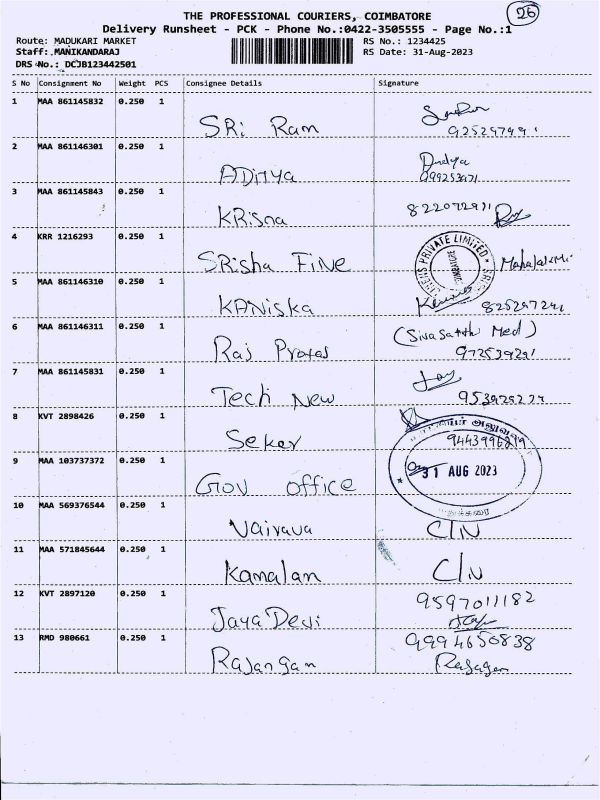 THE PROFESSIONAL COURIERS, COIMBATORE
26
Delivery Runsheet - PCK - Phone No.:0422-3505555 - Page No.:1
Route: MADUKARI MARKET RS No.: 1234425
Staff: MANIKANDARAJ RS Date: 31-Aug-2023
DRS No.: DCJB123442501
S No Consignment No Weight PCS Consignee Details Signature
1 MAA 861145832 0.250 1
SRi Ram
2 MAA 861146301 0.250 1
ADitya
3 MAA 861145843 0.250 1
KRisna
4 KRR 1216293 0.250 1
SRisha Fine PRIVATE LIMITED
5 MAA 861146310 0.250 1
KANiska
6 MAA 861146311 0.250 1
Raj
7 MAA 861145831 0.250 1
Tech New
8 KVT 2898426 0.250 1
Seker
9 MAA 103737372 0.250 1 31 AUG 2023
Gov office
10 MAA 569376544 0.250 1
Vairava C/N
11 MAA 571845644 0.250 1
Kamalan C/N
12 KVT 2897120 0.250 1 9597011182
Jaya Devi
13 RMD 980661 0.250 1 9994650838
Rajangan Rajagan